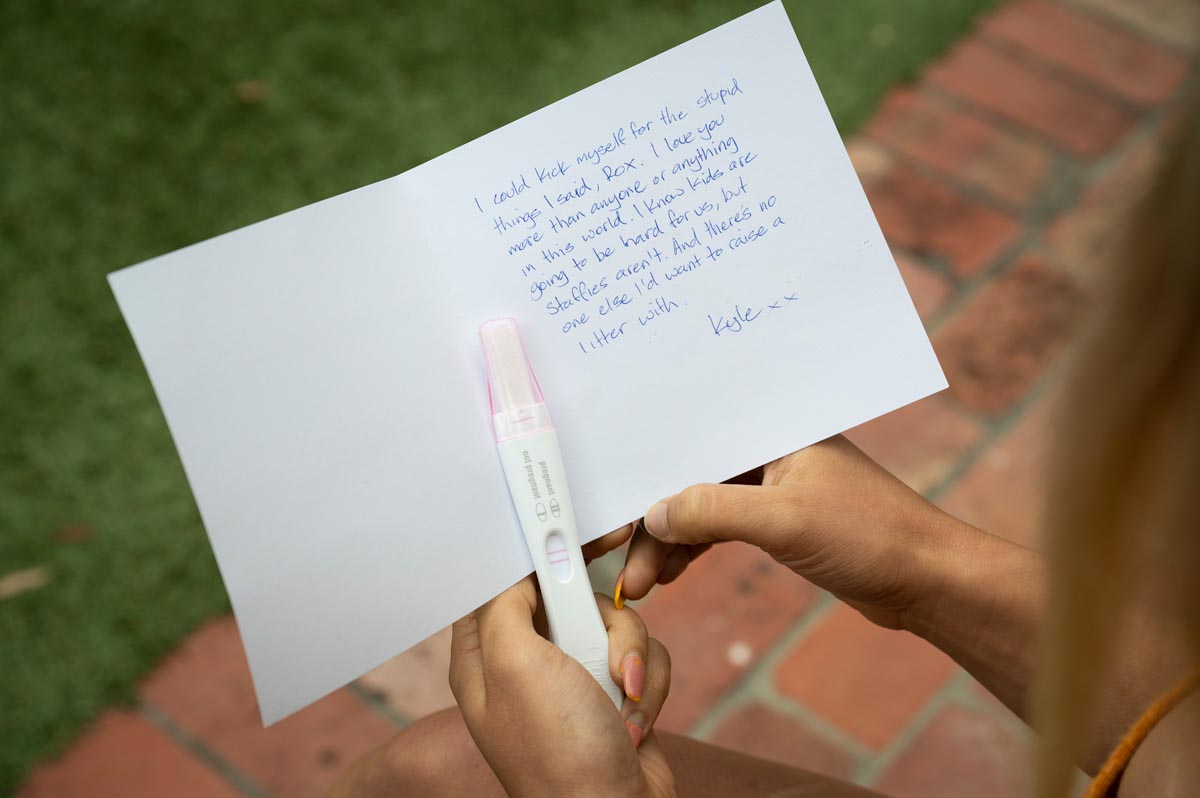 I could kick myself for the stupid
things I said, Rox. I love you
more than anyone or anything
in this world. I know kids are
going to be hard for us, but
Staffies aren't. And there's no
one else I'd want to raise a
litter with.
Kyle xx
pregnant
not pregnant